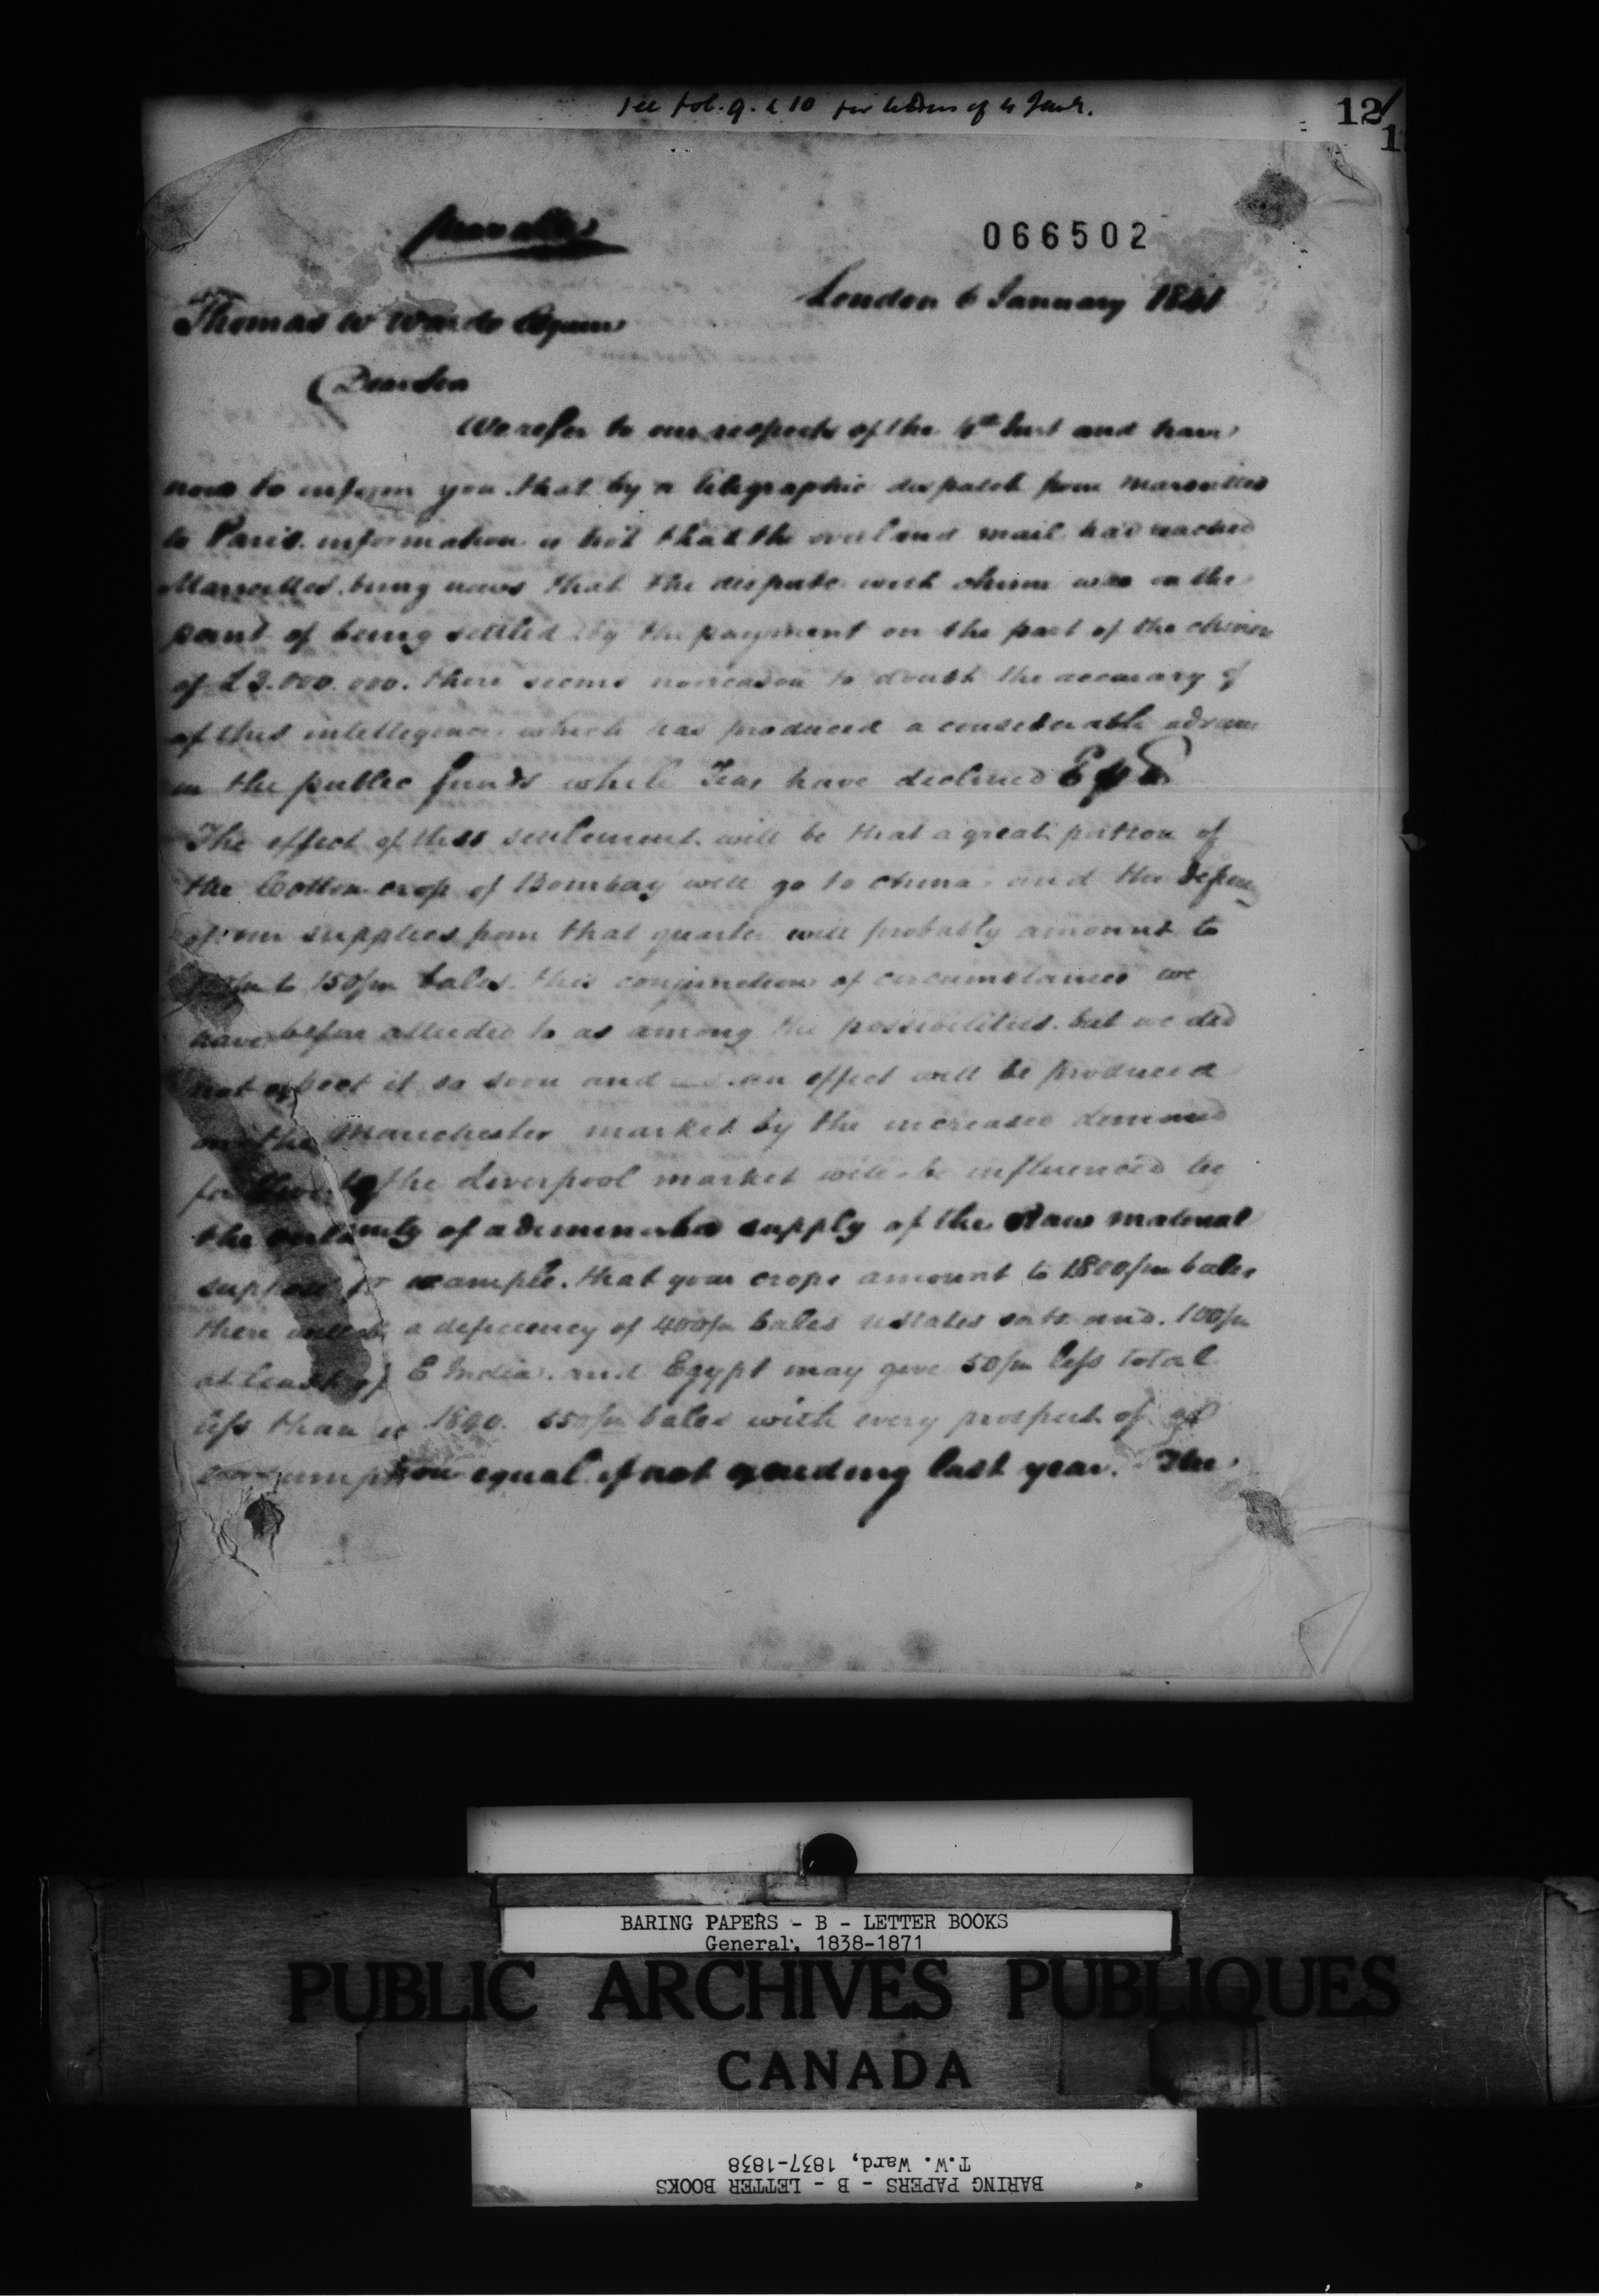 see fol. 9. & 10 for letters of 4 Jany.
12
1
066502
London 6 January 1841
Thomas W Ward Esquire
Dear Sir
We refer to our respects of the 4th Inst and have
now to inform you that by a telegraphic despatch from Marseilles
to Paris information is that the overland mail had reached
Marseilles. bring news that the dispute with china was on the
point of being settled by the payment on the part of the chinese
of £3.000.000. there seems no reason to doubt the accuracy of
of this intelligence which has produced a considerable advance
in the public funds while Teas have declined
The effect of this settlement will be that a great portion of
the Cotton crop of Bombay will go to china and the
of our supplies from that quarter will probably amount to
to 150/m bales. this conjunction of circumstances we
have before alluded to as among the possibilities. but we did
not expect it so soon and an effect will be produced
on the Manchester market by the increased demand
for the Liverpool market will be influenced by
the certainty of a diminished supply of the Raw material
suppose for example. that your crops amount to 1800/m bales
there will be a deficiency of 400/m bales U States sorts and. 100/m
at least of E India. and Egypt may give 50/m less total
less than in 1840. 550/m bales with every prospect of a
consumption equal if not exceeding last year. The
BARING PAPERS - B - LETTER BOOKS
General, 1838-1871
PUBLIC ARCHIVES PUBLIQUES
CANADA
BARING PAPERS - B - LETTER BOOKS
T.W. Ward, 1837-1838